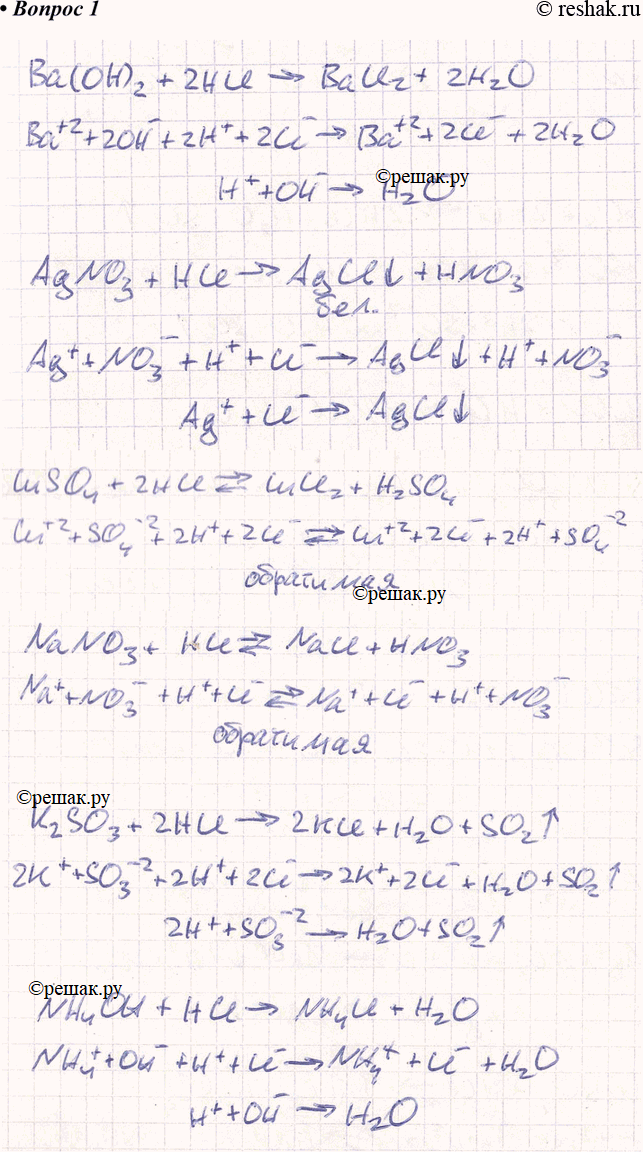 • Вопрос 1
© reshak.ru
Ba(OH)₂ + 2HCl → BaCl₂ + 2H₂O
Ba⁺² + 2OH⁻ + 2H⁺ + 2Cl⁻ → Ba⁺² + 2Cl⁻ + 2H₂O
©решак.ру
H⁺ + OH⁻ → H₂O
AgNO₃ + HCl → AgCl↓ + HNO₃
бел.
Ag⁺ + NO₃⁻ + H⁺ + Cl⁻ → AgCl↓ + H⁺ + NO₃⁻
Ag⁺ + Cl⁻ → AgCl↓
CuSO₄ + 2HCl ⇄ CuCl₂ + H₂SO₄
Cu⁺² + SO₄⁻² + 2H⁺ + 2Cl⁻ ⇄ Cu⁺² + 2Cl⁻ + 2H⁺ + SO₄⁻²
обратимая
©решак.ру
NaNO₃ + HCl ⇄ NaCl + HNO₃
Na⁺ + NO₃⁻ + H⁺ + Cl⁻ ⇄ Na⁺ + Cl⁻ + H⁺ + NO₃⁻
обратимая
©решак.ру
K₂SO₃ + 2HCl → 2KCl + H₂O + SO₂↑
2K⁺ + SO₃⁻² + 2H⁺ + 2Cl⁻ → 2K⁺ + 2Cl⁻ + H₂O + SO₂↑
2H⁺ + SO₃⁻² → H₂O + SO₂↑
©решак.ру
NH₄OH + HCl → NH₄Cl + H₂O
NH₄⁺ + OH⁻ + H⁺ + Cl⁻ → NH₄⁺ + Cl⁻ + H₂O
H⁺ + OH⁻ → H₂O